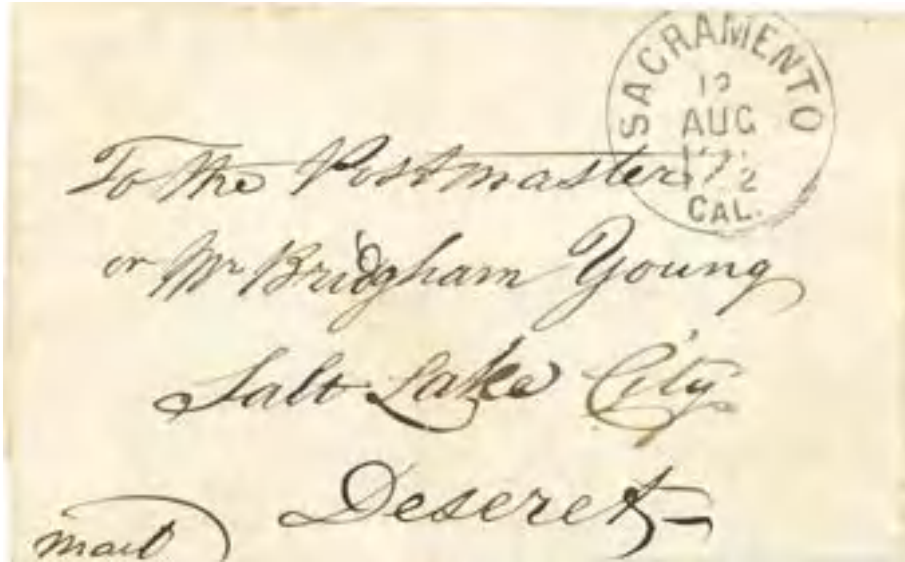 SACRAMENTO
AUG
CAL.
To the Postmaster
or Mr Bridgham Young
Salt Lake City
Deseret
mail